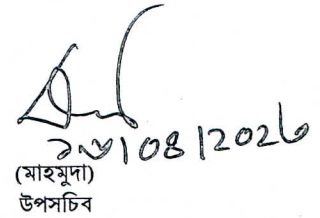 ১৬|০৪|২০২৬
(মাহমুদা)
উপসচিব